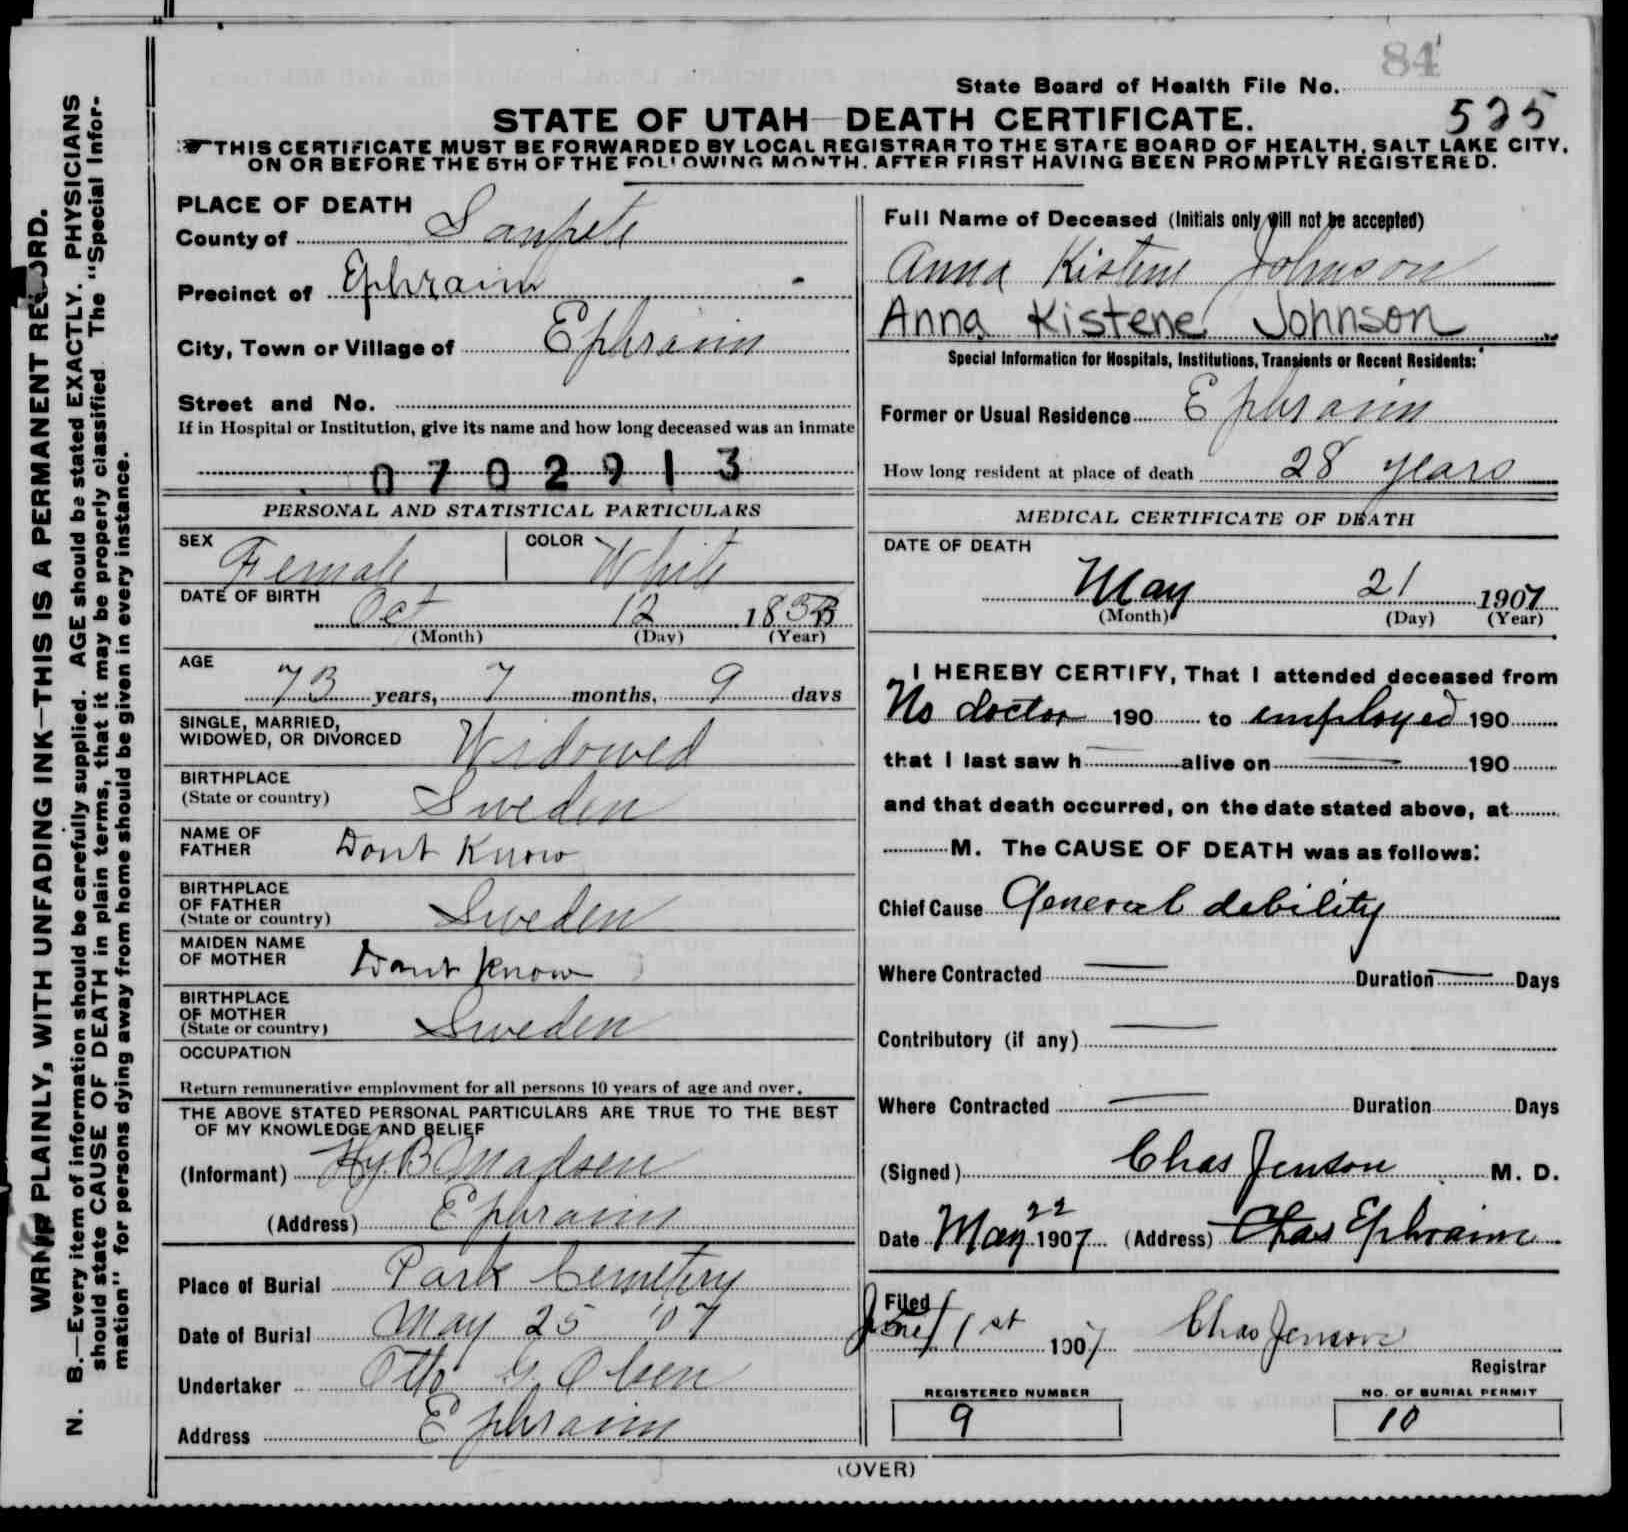 84
State Board of Health File No.
525
STATE OF UTAH—DEATH CERTIFICATE.
THIS CERTIFICATE MUST BE FORWARDED BY LOCAL REGISTRAR TO THE STATE BOARD OF HEALTH, SALT LAKE CITY,
ON OR BEFORE THE 5TH OF THE FOLLOWING MONTH, AFTER FIRST HAVING BEEN PROMPTLY REGISTERED.
WRITE PLAINLY, WITH UNFADING INK—THIS IS A PERMANENT RECORD.
N. B.—Every item of information should be carefully supplied. AGE should be stated EXACTLY. PHYSICIANS
should state CAUSE OF DEATH in plain terms, that it may be properly classified The "Special Infor-
mation" for persons dying away from home should be given in every instance.
PLACE OF DEATH
County of Sanpete
Precinct of Ephraim
City, Town or Village of Ephraim
Street and No.
If in Hospital or Institution, give its name and how long deceased was an inmate
0702913
PERSONAL AND STATISTICAL PARTICULARS
SEX Female COLOR White
DATE OF BIRTH Oct 12
(Month) (Day) (Year)
AGE 73 years, 7 months, 9 days
SINGLE, MARRIED,
WIDOWED, OR DIVORCED Widowed
BIRTHPLACE
(State or country) Sweden
NAME OF
FATHER Dont Know
BIRTHPLACE
OF FATHER
(State or country) Sweden
MAIDEN NAME
OF MOTHER Dont Know
BIRTHPLACE
OF MOTHER
(State or country) Sweden
OCCUPATION
Return remunerative employment for all persons 10 years of age and over.
THE ABOVE STATED PERSONAL PARTICULARS ARE TRUE TO THE BEST
OF MY KNOWLEDGE AND BELIEF
(Informant) Hy. B Madsen
(Address) Ephraim
Place of Burial Park Cemetery
Date of Burial May 25 '07
Undertaker Otto G Olsen
Address Ephraim
Full Name of Deceased (Initials only will not be accepted)
Anna Kistene Johnson
Anna Kistene Johnson
Special Information for Hospitals, Institutions, Transients or Recent Residents:
Former or Usual Residence Ephraim
How long resident at place of death 28 years
MEDICAL CERTIFICATE OF DEATH
DATE OF DEATH
May 21 1907
(Month) (Day) (Year)
I HEREBY CERTIFY, That I attended deceased from
No doctor 190 to employed 190
that I last saw h alive on 190
and that death occurred, on the date stated above, at
M. The CAUSE OF DEATH was as follows:
Chief Cause General debility
Where Contracted Duration Days
Contributory (if any)
Where Contracted Duration Days
(Signed) Chas Jenson M. D.
Date May 22 1907 (Address) Chas Ephraim
Filed
June 1st 1907 Chas Jenson
Registrar
REGISTERED NUMBER NO. OF BURIAL PERMIT
9 10
(OVER)